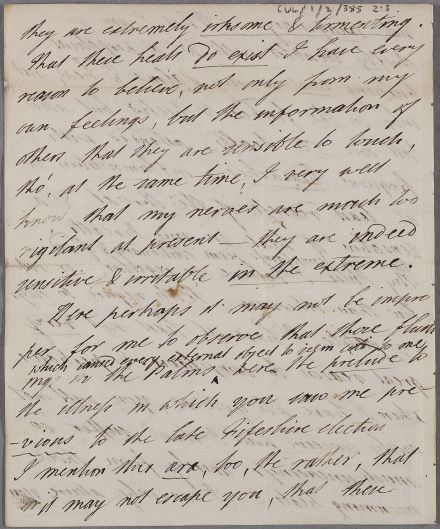 CWG/1/2/385 2:3
they are extremely irksome & tormenting.
That these heats do exist I have every
reason to believe, not only from my
own feelings, but the information of
others that they are sensible to touch,
tho', at the same time, I very well
know that my nerves are much too
vigilant at present — they are indeed
sensitive & irritable in the extreme.
Here perhaps it may not be impro
per for me to observe that those flush
which caused every external object to seem to me
ings in the Palms were the prelude to
the illness in which you saw me pre-
vious to the late Fifeshire election
I mention this æra, too, the rather, that
it may not escape you, that these